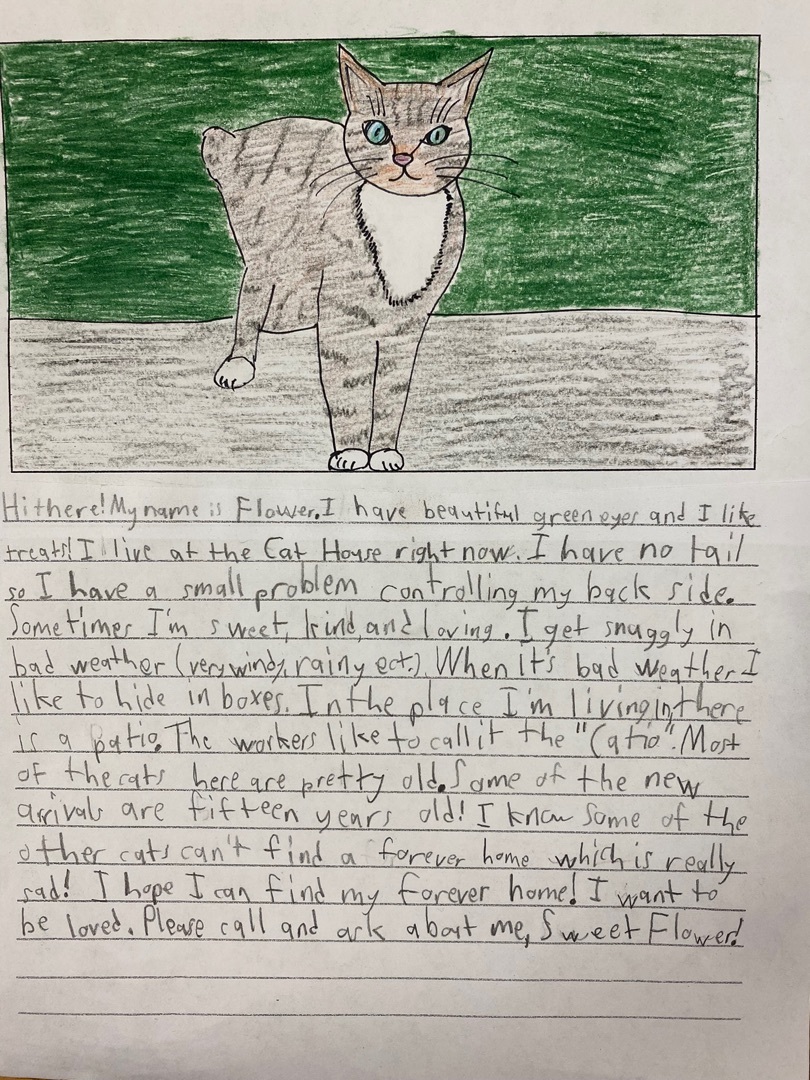 Hi there! My name is Flower. I have beautiful green eyes and I like
treats! I live at the Cat House right now. I have no tail
so I have a small problem controlling my back side.
Sometimes I'm sweet, kind, and loving. I get snuggly in
bad weather (very windy, rainy ect.). When it's bad weather I
like to hide in boxes. In the place I'm living in, there
is a patio. The workers like to call it the "Catio". Most
of the cats here are pretty old. Some of the new
arrivals are fifteen years old! I know some of the
other cats can't find a forever home which is really
sad! I hope I can find my forever home! I want to
be loved. Please call and ask about me, Sweet Flower!